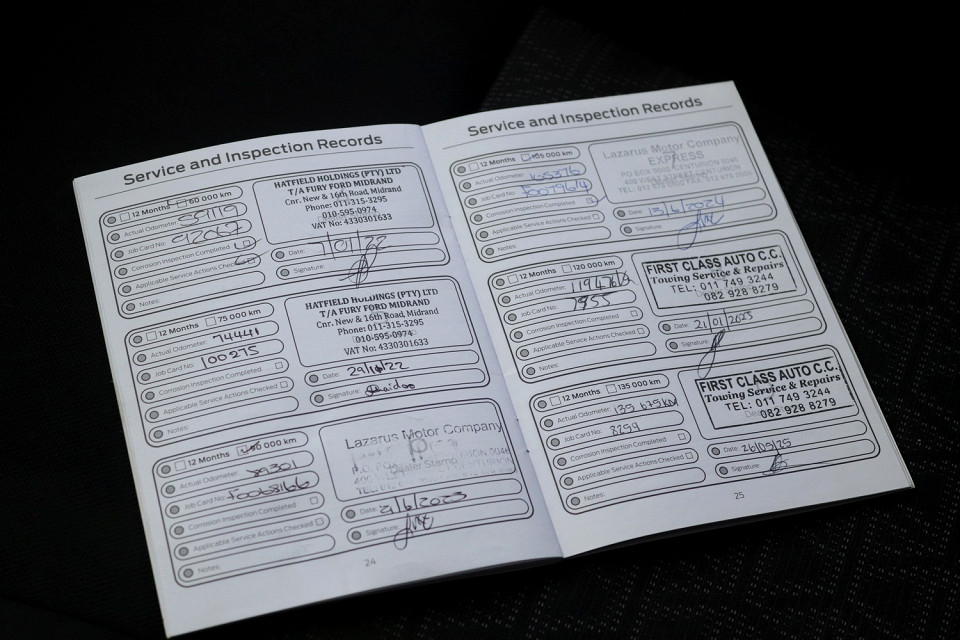 Service and Inspection Records
12 Months
60 000 km
Actual Odometer:
Job Card No:
92067
Corrosion Inspection Completed
Applicable Service Actions Checked
Notes:
HATFIELD HOLDINGS (PTY) LTD
T/A FURY FORD MIDRAND
Cnr. New & 16th Road, Midrand
Phone: 011-315-3295
010-595-0974
VAT No: 4330301633
Date: 7/01/22
Signature:
12 Months
75 000 km
Actual Odometer: 74441
Job Card No: 100275
Corrosion Inspection Completed
Applicable Service Actions Checked
Notes:
HATFIELD HOLDINGS (PTY) LTD
T/A FURY FORD MIDRAND
Cnr. New & 16th Road, Midrand
Phone: 011-315-3295
010-595-0974
VAT No: 4330301633
Date:
Signature:
12 Months
90 000 km
Actual Odometer: 89301
Job Card No: F0068166
Corrosion Inspection Completed
Applicable Service Actions Checked
Notes:
Lazarus Motor Company
Dealer Stamp
Date: 21/6/2023
Signature:
24
Service and Inspection Records
12 Months
105 000 km
Actual Odometer: 105376
Job Card No: F0079614
Corrosion Inspection Completed
Applicable Service Actions Checked
Notes:
Lazarus Motor Company
EXPRESS
Date: 13/6/2024
Signature:
12 Months
120 000 km
Actual Odometer:
Job Card No: 7955
Corrosion Inspection Completed
Applicable Service Actions Checked
Notes:
FIRST CLASS AUTO C.C.
Towing Service & Repairs
TEL: 011 749 3244
082 928 8279
Date: 21/01/2025
Signature:
12 Months
135 000 km
Actual Odometer: 135 675 KM
Job Card No: 8299
Corrosion Inspection Completed
Applicable Service Actions Checked
Notes:
FIRST CLASS AUTO C.C.
Towing Service & Repairs
TEL: 011 749 3244
082 928 8279
Date: 26/09/25
Signature:
25